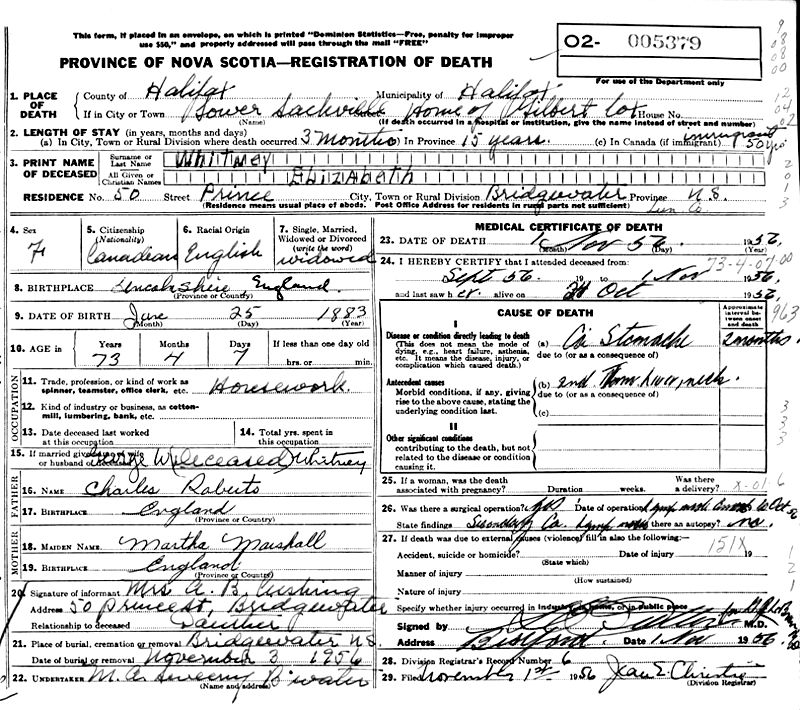 This form, if placed in an envelope, on which is printed "Dominion Statistics—Free, penalty for improper
use $50," and properly addressed will pass through the mail "FREE"
PROVINCE OF NOVA SCOTIA—REGISTRATION OF DEATH
O2- 005379
For use of the Department only
1. PLACE OF DEATH County of Halifax Municipality of Halifax
If in City or Town Lower Sackville Home of Gilbert Cox House No.
(Name) (If death occurred in a hospital or institution, give the name instead of street and number)
2. LENGTH OF STAY (in years, months and days) immigrant
(a) In City, Town or Rural Division where death occurred 3 months In Province 15 years. (c) In Canada (if immigrant) 50 yrs
3. PRINT NAME OF DECEASED Surname or Last Name WHITNEY
All Given or Christian Names ELIZABETH
RESIDENCE No. 50 Street Prince City, Town or Rural Division Bridgewater Province N.S.
(Residence means usual place of abode. Post Office Address for residents in rural parts not sufficient) Lun. Co.
4. Sex F
5. Citizenship (Nationality) Canadean
6. Racial Origin English
7. Single, Married, Widowed or Divorced (write the word) widowed
8. BIRTHPLACE Lincolnshire, England.
(Province or Country)
9. DATE OF BIRTH June 25 1883
(Month) (Day) (Year)
10. AGE in Years 73 Months 4 Days 7 If less than one day old
hrs. or min.
OCCUPATION
11. Trade, profession, or kind of work as spinner, teamster, office clerk, etc. Housework.
12. Kind of industry or business, as cotton-mill, lumbering, bank, etc.
13. Date deceased last worked at this occupation
14. Total yrs. spent in this occupation
15. If married give name of wife or husband of deceased George W (deceased) Whitney
FATHER
16. NAME Charles Roberts
17. BIRTHPLACE England
(Province or Country)
MOTHER
18. MAIDEN NAME Martha Marshall
19. BIRTHPLACE England
(Province or Country)
20. Signature of informant Mrs A. B. Cushing
Address 50 Prince St, Bridgewater
Relationship to deceased
21. Place of burial, cremation or removal Bridgewater NS
Date of burial or removal November 3 1956
22. UNDERTAKER M. A. Sweeny B'water
(Name and address)
MEDICAL CERTIFICATE OF DEATH
23. DATE OF DEATH 1 Nov 56 1956
(Month) (Day) (Year)
24. I HEREBY CERTIFY that I attended deceased from: 73-4-07-00
Sept 56 19 to 1 Nov 1956
and last saw her alive on Oct 1956
CAUSE OF DEATH
Approximate interval between onset and death
I
Disease or condition directly leading to death (a) Ca Stomach 2 months
(This does not mean the mode of dying, e.g., heart failure, asthenia, etc. It means the disease, injury, or complication which caused death.) due to (or as a consequence of)
Antecedent causes (b) 2nd Liver, neck.
Morbid conditions, if any, giving rise to the above cause, stating the underlying condition last. due to (or as a consequence of)
(c)
II
Other significant conditions
contributing to the death, but not related to the disease or condition causing it.
25. If a woman, was the death associated with pregnancy? Duration weeks. Was there a delivery? X-01
26. Was there a surgical operation? yes Date of operation Oct 56
State findings Secondary Ca. Was there an autopsy? no.
27. If death was due to external causes (violence) fill in also the following:—
Accident, suicide or homicide? Date of injury 151X
(State which)
Manner of injury
(How sustained)
Nature of injury
Specify whether injury occurred in industry, in home, or in public place
Signed by M.D.
Address Bedford. Date 1 Nov 1956
28. Division Registrar's Record Number 6
29. Filed November 1st 1956 Jean E. Christie
(Division Registrar)